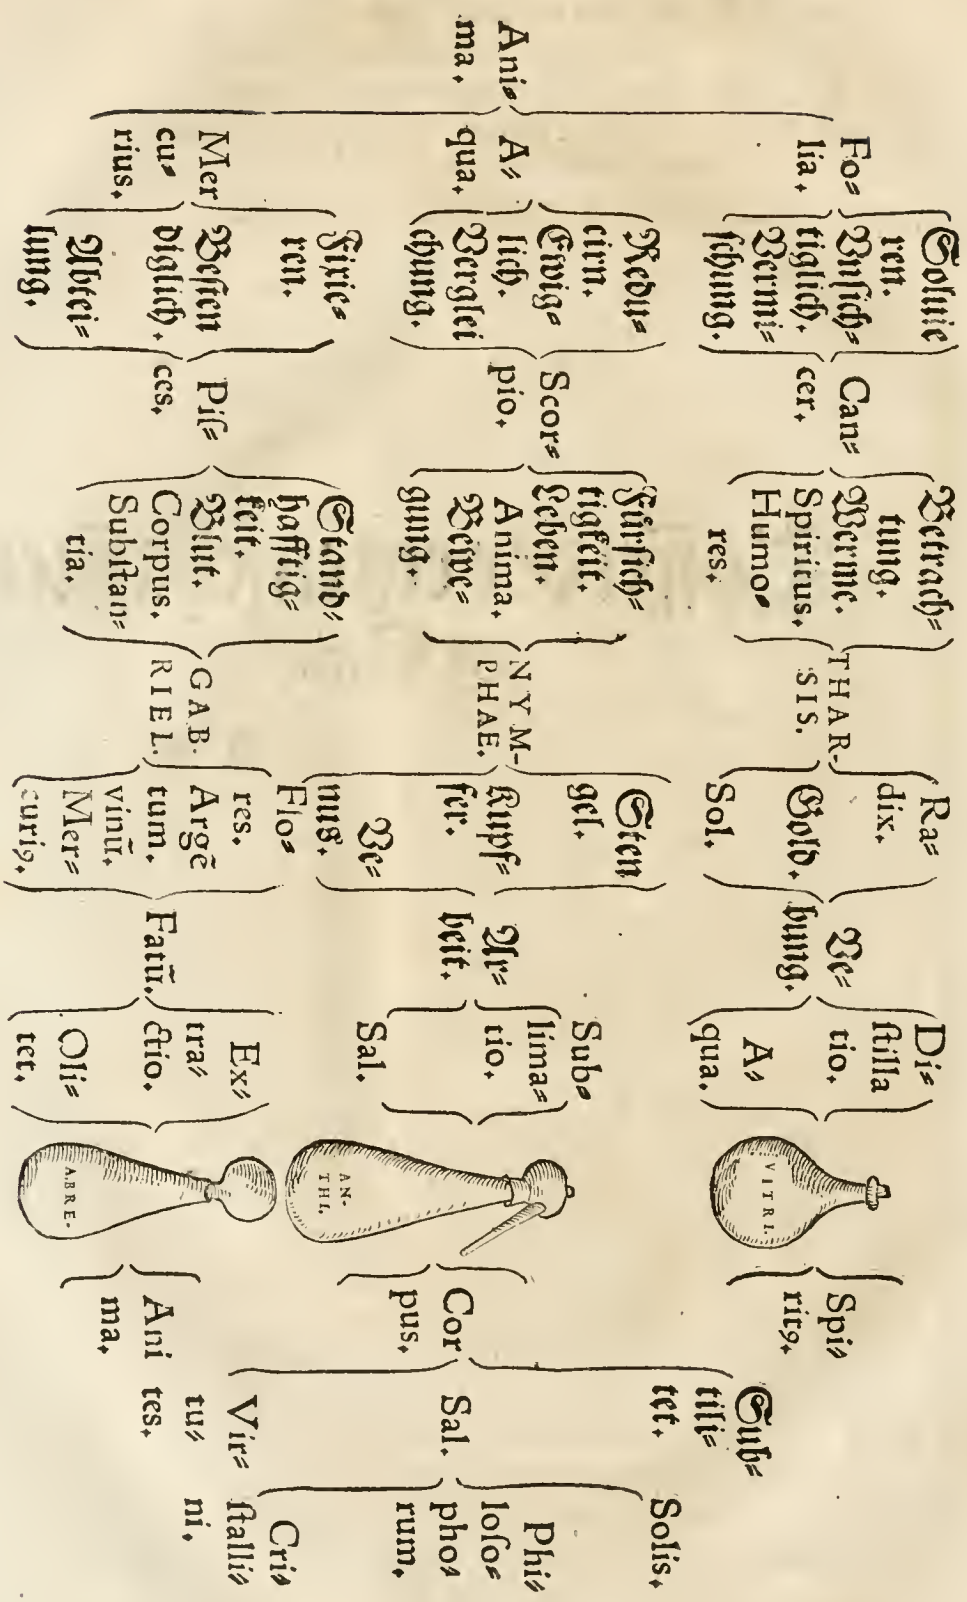 Ani=
ma.
Fo=
lia.
A=
qua.
Mer
cu=
rius.
Soluie
ren.
Vnſich=
tiglich.
Vermi=
ſchung.
Redu=
cirn.
Ewig=
lich.
Verglei
chung.
Fixie=
ren.
Beſten
diglich.
Abtei=
lung.
Can=
cer.
Scor=
pio.
Piſ=
ces.
Betrach=
tung.
Werme.
Spiritus.
Humo=
res.
Fürſich=
tigkeit.
Leben.
Anima.
Bewe=
gung.
Stand=
hafftig=
keit.
Blut.
Corpus.
Subſtan=
tia.
THAR-
SIS.
NYM-
PHAE.
GAB-
RIEL.
Ra=
dix.
Gold.
Sol.
Sten
gel.
Kupf=
fer.
Ve=
nus.
Flo=
res.
Argē
tum.
vinū.
Mer=
curiꝰ.
Ve=
bung.
Ar=
beit.
Fatū.
Di=
ſtilla
tio.
A=
qua.
Sub=
lima=
tio.
Sal.
Ex=
tra=
ctio.
Oli=
tet.
VITRI.
AN-
THI.
ABRE-
Spi=
ritꝰ.
Cor
pus.
Ani
ma.
Sub=
tili=
tet.
Sal.
Vir=
tu=
tes.
Solis.
Phi=
loſo=
pho=
rum.
Cri=
ſtalli=
ni.